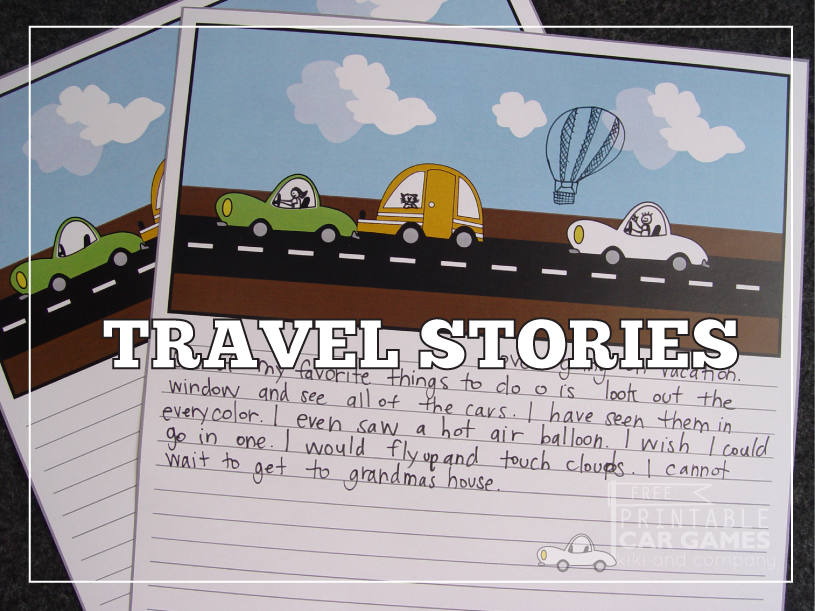 TRAVEL STORIES
vacation.
my favorite things to do o is look out the
window and see all of the cars. I have seen them in
every color. I even saw a hot air balloon. I wish I could
go in one. I would fly up and touch clouds. I cannot
wait to get to grandmas house.
FREE
PRINTABLE
CAR GAMES
kiki and company